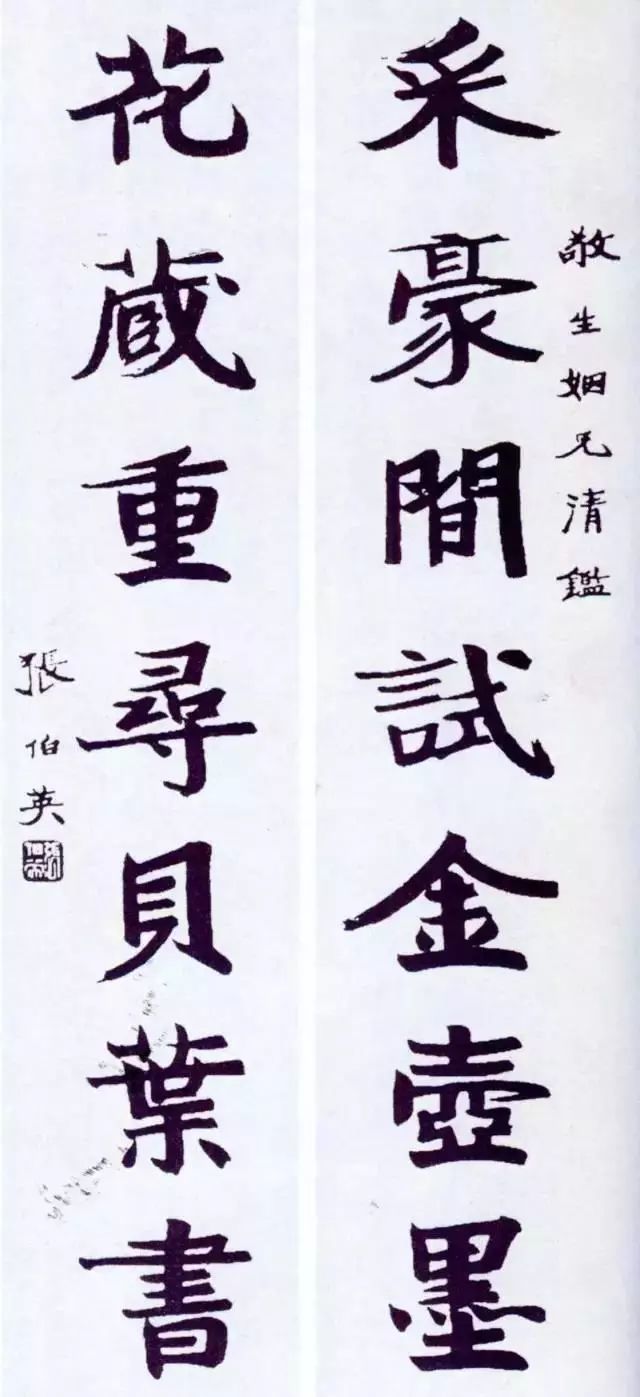 敬生姻兄清鑑
采豪閒試金壺墨
花蔵重尋貝葉書
張伯英